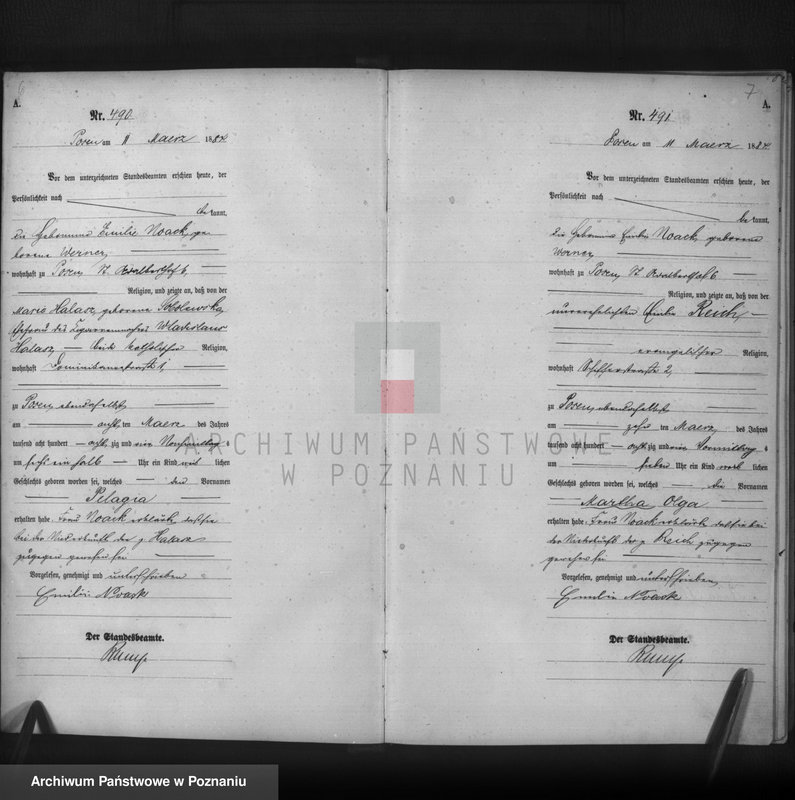 6
A.
Nr. 490
Posen am 11 Maerz 1884
Vor dem unterzeichneten Standesbeamten erschien heute, der
Persönlichkeit nach
be kannt,
die Hebamme Emilie Noack, ge
borene Werner,
wohnhaft zu Posen, St. Adalbertstr 6,
Religion, und zeigte an, daß von der
Marie Halasz, geborene
Ehefrau des Zigarrenmachers Wladislaus
Halasz, beide katholischer Religion,
wohnhaft Dominikanerstr. 1,
zu Posen, ebendaselbst,
am achten Maerz des Jahres
tausend acht hundert achtzig und vier Vormittag s
um sechs ein halb Uhr ein Kind weib lichen
Geschlechts geboren worden sei, welches den Vornamen
Pelagia
erhalten habe. Frau Noack erklärte, daß sie
bei der Niederkunft der p. Halasz
zugegen gewesen sei
Vorgelesen, genehmigt und unterschrieben
Emilie Noack
Der Standesbeamte.
7
A.
Nr. 491
Posen am 11 Maerz 1884
Vor dem unterzeichneten Standesbeamten erschien heute, der
Persönlichkeit nach
be kannt,
die Hebamme Emilie Noack, geborene
Werner,
wohnhaft zu Posen, St. Adalbertstr 6
Religion, und zeigte an, daß von der
unverehelichten Emilie Reich,
evangelischer Religion,
wohnhaft Schifferstraße 2,
zu Posen, ebendaselbst
am zehnten Maerz, des Jahres
tausend acht hundert achtzig und vier Vormittag s
um sieben Uhr ein Kind weib lichen
Geschlechts geboren worden sei, welches die Vornamen
Martha Olga
erhalten habe. Frau Noack erklärte daß sie bei
der Niederkunft der p. Reich zugegen
gewesen sei
Vorgelesen, genehmigt und unterschrieben,
Emilie Noack
Der Standesbeamte.
ARCHIWUM PAŃSTWOWE
W POZNANIU
Archiwum Państwowe w Poznaniu